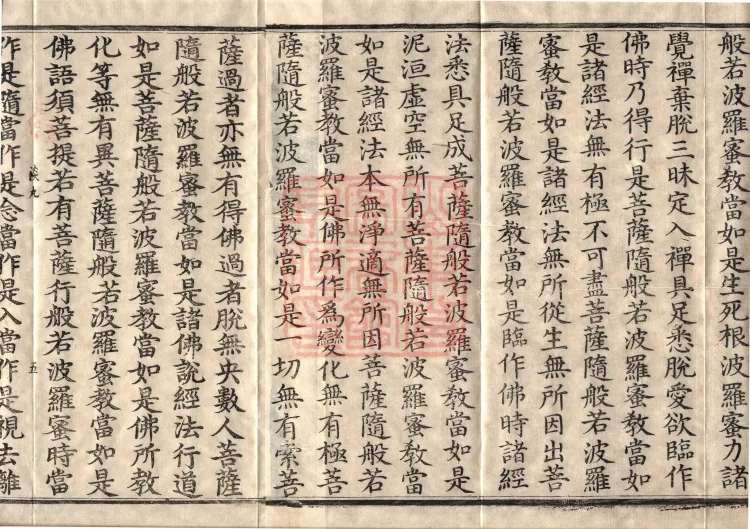 般若波羅蜜教當如是生死根波羅蜜力諸
覺禪棄脫三昧定入禪具足悉脫愛欲臨作
佛時乃得行是菩薩隨般若波羅蜜教當如
是諸經法無有極不可盡菩薩隨般若波羅
蜜教當如是諸經法無所從生無所因出菩
薩隨般若波羅蜜教當如是臨作佛時諸經
法悉具足成菩薩隨般若波羅蜜教當如是
泥洹虛空無所有菩薩隨般若波羅蜜教當
如是諸經法本無淨適無所因菩薩隨般若
波羅蜜教當如是佛所作為變化無有極菩
薩隨般若波羅蜜教當如是一切無有索菩
薩過者亦無有得佛過者脫無央數人菩薩
隨般若波羅蜜教當如是諸佛說經法行道
如是菩薩隨般若波羅蜜教當如是佛所教
化等無有異菩薩隨般若波羅蜜教當如是
佛語須菩提若有菩薩行般若波羅蜜時當
九 五
作是隨當作是念當作是入當作是視去離